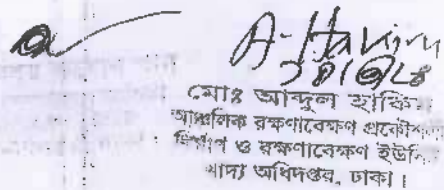 A. Hakim
মোঃ আব্দুল হাকিম
আঞ্চলিক রক্ষণাবেক্ষণ প্রকৌশলী
নির্মাণ ও রক্ষণাবেক্ষণ ইউনিট
খাদ্য অধিদপ্তর, ঢাকা।